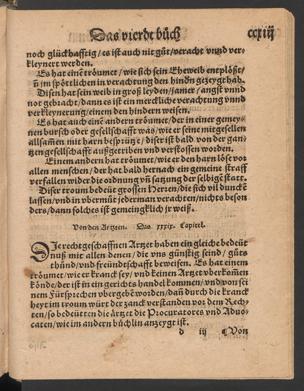 Das vierdt bůch
ccxiij
noch glückhafftig / es ist auch nit gůt / veracht vnnd ver-
kleynert werden.
Es hat eine tröumet / wie sich sein Eheweib entplößt /
im spöttlichen in verachtung den hindn gezeygt hab.
Disen hat sein weib in groß leyden / jamer / angst vnnd
not gebracht / dann es ist ein merckliche verachtung vnnd
verkleynerung / einem den hindern weisen.
Es hat auch eine andern tröumet / der in einer gemey-
nen bursch oder gesellschafft was / wie er seine mitgesellen
allsamen mit harn besprützt / diser ist bald von der gan-
tzen gesellschafft außgetriben vnd verstossen worden.
Einem andern hat tröumet / wie er den harn löse vor
allen menschen / der hat bald hernach ein gemeine straff
verfallen wider die ordnung vnd satzung der selbigē statt.
Diser troum bedeüt grossen Herren / die sich vil dunckē
lassen / vnd in übermůt jederman verachten / nichts beson
ders / dann solches ist gemeingklich jr weiß.
Von den Artzten. Das xxxix. Capitel.
Die rechtgeschaffnen Artzet haben ein gleiche bedeüt
nuß mit allen denen / die vns günstig seind / gůts
thůnd / vnd freündtschafft beweisen. Es hat einem
tröumet / wie er kranck sey / vnd keinen Artzet überkomēn
könde / der ist in ein gerichts handel kommen / vnd von sei
nem Fürsprechen übergeben worden / dañ durch die kranck
heyt im troum würt der zanck verstanden vor dem Rech-
ten / so bedeütten die Artzet die Procuratores vnd Aduo-
caten / wie im andern bůchlin anzeygt ist.
d iij
Von